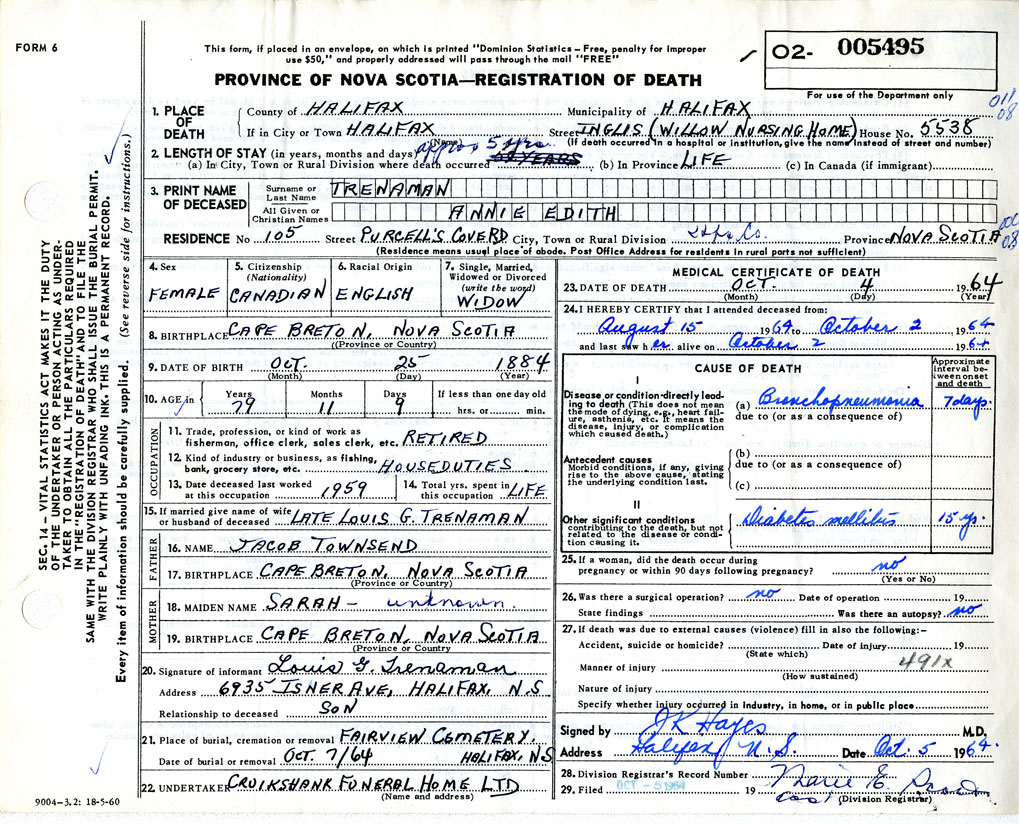 FORM 6
This form, if placed in an envelope, on which is printed "Dominion Statistics – Free, penalty for improper
use $50," and properly addressed will pass through the mail "FREE"
PROVINCE OF NOVA SCOTIA—REGISTRATION OF DEATH
02- 005495
For use of the Department only
SEC. 14—VITAL STATISTICS ACT MAKES IT THE DUTY
OF THE UNDERTAKER OR PERSON ACTING AS UNDER-
TAKER TO OBTAIN ALL THE PARTICULARS REQUIRED
IN THE "REGISTRATION OF DEATH" AND TO FILE THE
SAME WITH THE DIVISION REGISTRAR WHO SHALL ISSUE THE BURIAL PERMIT.
WRITE PLAINLY WITH UNFADING INK. THIS IS A PERMANENT RECORD.
Every item of information should be carefully supplied. (See reverse side for instructions.)
1. PLACE OF DEATH
County of HALIFAX Municipality of HALIFAX
If in City or Town HALIFAX Street INGLIS (WILLOW NURSING HOME) House No. 5538
(Name) (If death occurred in a hospital or institution, give the name instead of street and number)
2. LENGTH OF STAY (in years, months and days) approx 5 yrs.
(a) In City, Town or Rural Division where death occurred (b) In Province LIFE (c) In Canada (if immigrant)
3. PRINT NAME OF DECEASED
Surname or Last Name TRENAMAN
All Given or Christian Names ANNIE EDITH
RESIDENCE No 105 Street PURCELL'S COVE RD City, Town or Rural Division Hfx. Co. Province NOVA SCOTIA
(Residence means usual place of abode. Post Office Address for residents in rural parts not sufficient)
4. Sex FEMALE
5. Citizenship (Nationality) CANADIAN
6. Racial Origin ENGLISH
7. Single, Married, Widowed or Divorced (write the word) WIDOW
8. BIRTHPLACE CAPE BRETON, NOVA SCOTIA
(Province or Country)
9. DATE OF BIRTH OCT. 25 1884
(Month) (Day) (Year)
10. AGE in Years 79 Months 11 Days 9 If less than one day old hrs. or min.
OCCUPATION
11. Trade, profession, or kind of work as
fisherman, office clerk, sales clerk, etc. RETIRED
12. Kind of industry or business, as fishing,
bank, grocery store, etc. HOUSEDUTIES
13. Date deceased last worked at this occupation 1959
14. Total yrs. spent in this occupation LIFE
15. If married give name of wife or husband of deceased LATE LOUIS G. TRENAMAN
FATHER
16. NAME JACOB TOWNSEND
17. BIRTHPLACE CAPE BRETON, NOVA SCOTIA
(Province or Country)
MOTHER
18. MAIDEN NAME SARAH - unknown.
19. BIRTHPLACE CAPE BRETON, NOVA SCOTIA
(Province or Country
20. Signature of informant Louis G. Trenaman
Address 6935 ISNER AVE, HALIFAX, N.S
Relationship to deceased SON
21. Place of burial, cremation or removal FAIRVIEW CEMETERY.
Date of burial or removal OCT. 7/64 HALIFAX, N.S
22. UNDERTAKER CRUIKSHANK FUNERAL HOME LTD
(Name and address)
9004-3.2: 18-5-60
MEDICAL CERTIFICATE OF DEATH
23. DATE OF DEATH OCT. 4 1964
(Month) (Day) (Year)
24. I HEREBY CERTIFY that I attended deceased from:
August 15 1964 to October 2 1964
and last saw her alive on October 2 1964
CAUSE OF DEATH
Approximate interval between onset and death
I
Disease or condition directly lead-
ing to death (This does not mean
the mode of dying, e.g., heart fail-
ure, asthenia, etc. It means the
disease, injury, or complication
which caused death.)
(a) Bronchopneumonia 7 days.
due to (or as a consequence of)
Antecedent causes
Morbid conditions, if any, giving
rise to the above cause, stating
the underlying condition last.
(b)
due to (or as a consequence of)
(c)
II
Other significant conditions
contributing to the death, but not
related to the disease or condi-
tion causing it.
Diabetes mellitus 15 ys.
25. If a woman, did the death occur during
pregnancy or within 90 days following pregnancy? no
(Yes or No)
26. Was there a surgical operation? no Date of operation 19
State findings Was there an autopsy? no
27. If death was due to external causes (violence) fill in also the following:–
Accident, suicide or homicide? Date of injury 19
(State which)
491x
Manner of injury
(How sustained)
Nature of injury
Specify whether injury occurred in Industry, in home, or in public place
Signed by JK Hayes M.D.
Address Halifax N.S. Date Oct. 5 1964
28. Division Registrar's Record Number
29. Filed OCT - 5 1964 19 Marie E.
(Division Registrar)